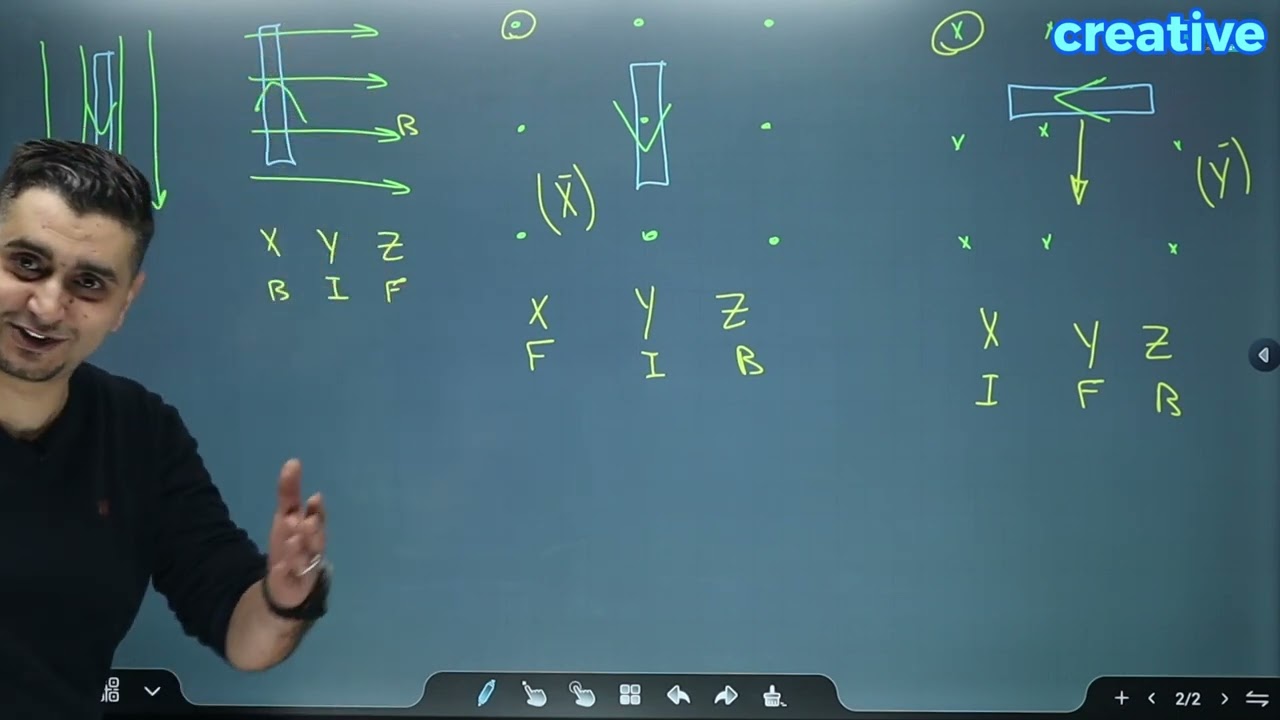 creative
B
(X̄)
(Ȳ)
X Y Z
B I F
X Y Z
F I B
X Y Z
I F B
2/2